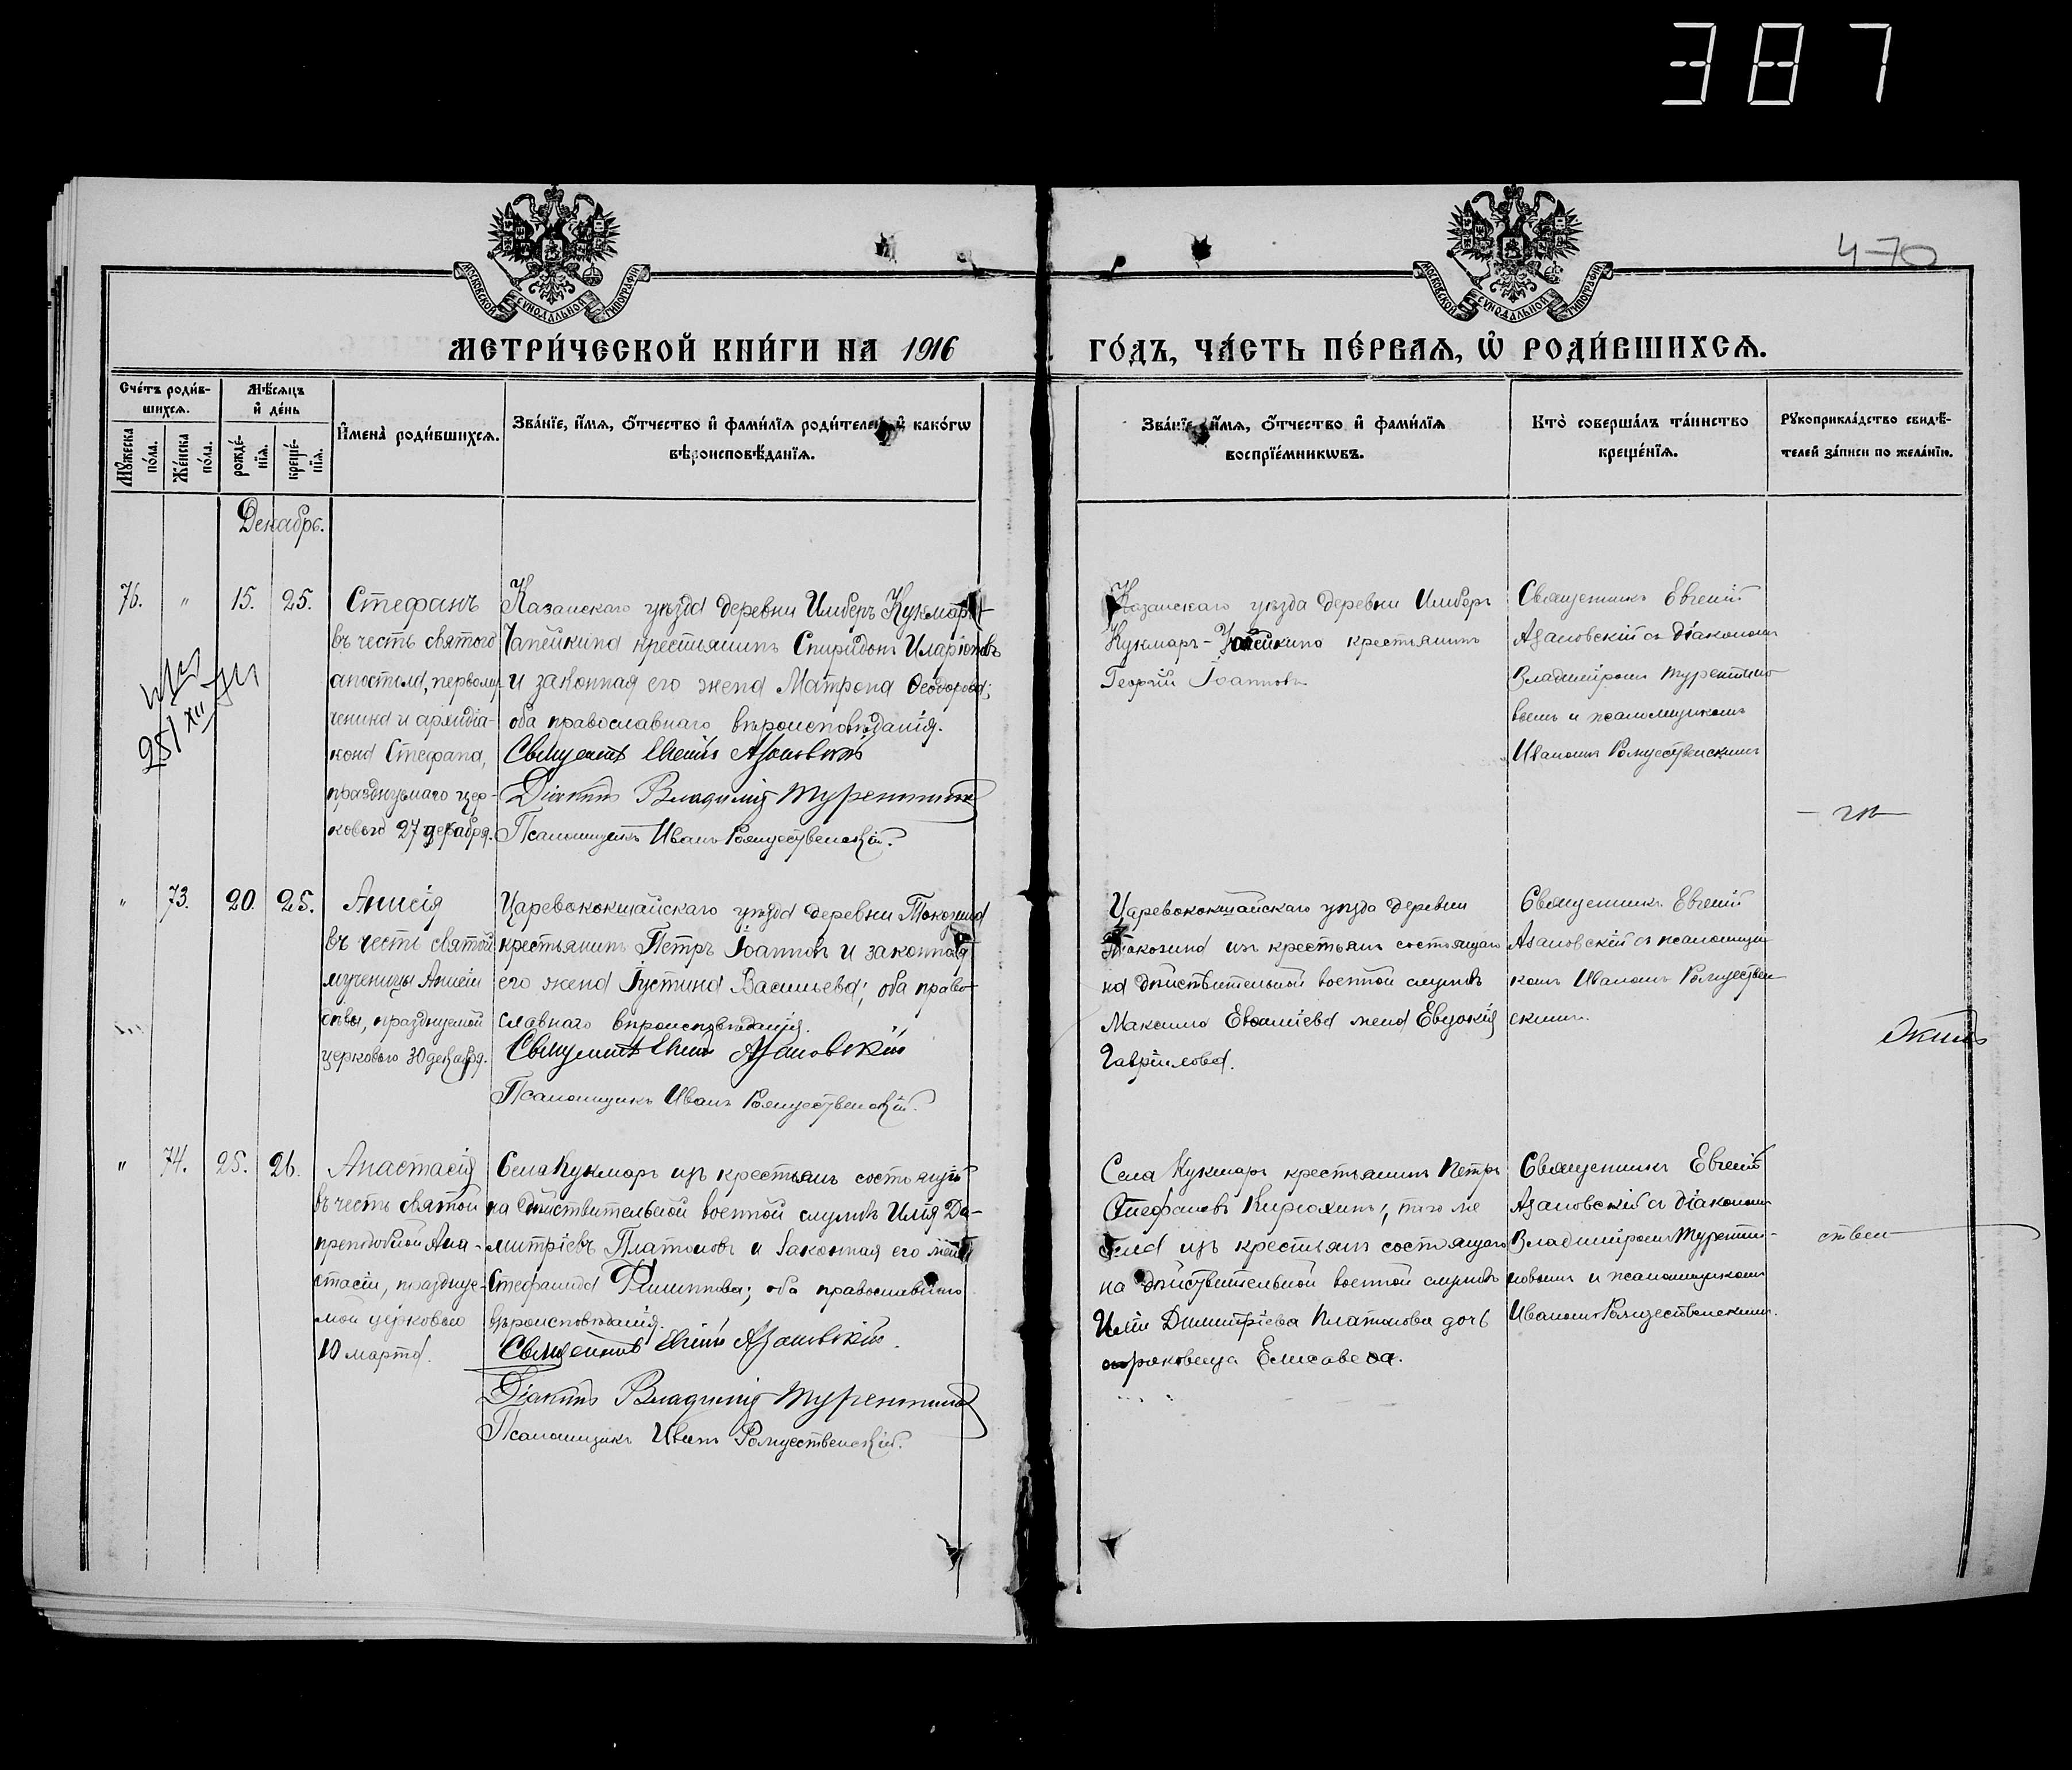 387
470
МОСКОВСКОЙ СѴНОДАЛЬНОЙ ТИПОГРАФІИ
МОСКОВСКОЙ СѴНОДАЛЬНОЙ ТИПОГРАФІИ
МЕТРИ́ЧЕСКОЙ КНИ́ГИ НА 1916
ГО́ДЪ, ЧА́СТЬ ПЕ́РВАЯ, Ѡ РОДИ́ВШИХСЯ.
Сче́тъ роди́в-
шихся.
Мѣ́сяцъ
и де́нь
Мꙋ́жеска
по́ла.
Же́нска
по́ла.
рожде́-
нїя.
креще́-
нїя.
Имена̀ роди́вшихся.
Зва́нїе, и́мя, ѻ́тчество и фами́лїя родителей, и како́гѡ
вѣроисповѣ́данїя.
Зва́нїе, и́мя, ѻ́тчество и фами́лїя
воспрїе́мникѡвъ.
Кто̀ соверша́лъ та́инство
креще́нїя.
Рꙋкоприкла́дство свидѣ́-
телей за́писи по жела́нїю.
Декабрь.
76. " 15. 25.
Стефанъ
въ честь святого
апостола, первому-
ченика и архидіа-
кона Стефана,
празднуемаго цер-
ковью 27 декабря.
25/XII
Казанскаго уѣзда деревни Илнберъ Кукмаръ-
Чапейкина крестьянинъ Спиридонъ Иларіоновъ
и законная его жена Матрона Ѳеодорова;
оба православнаго вѣроисповѣданія.
Священникъ Евгеній Азановскій
Діаконъ Владиміръ Турентинов
Псаломщикъ Иванъ Рождественскій.
Казанскаго уѣзда деревни Илнберъ
Кукмаръ- крестьянинъ
Георгій Іоанновъ
Священникъ Евгеній
Азановскій съ діакономъ
Владиміромъ Турентино-
вымъ и псаломщикомъ
Иваномъ Рождественскимъ
" 73. 20. 25.
Анисія
въ честь святой
мученицы Анисіи
празднуемой
церковью 30 декабря.
Царевококшайскаго уѣзда деревни Токозина
крестьянинъ Петръ Іоанновъ и законная
его жена Іустина Васильева; оба право-
славнаго вѣроисповѣданія.
Священникъ Евгеній Азановскій
Псаломщикъ Иванъ Рождественскій.
Царевококшайскаго уѣзда деревни
Токозина изъ крестьянъ состоящаго
на дѣйствительной военной службѣ
Максима жена Евдокія
Гаврилова.
Священникъ Евгеній
Азановскій съ псаломщи-
комъ Иваномъ Рождествен-
скимъ.
" 74. 25. 26.
Анастасія
въ честь святой
преподобной Ана-
стасіи, празднуе-
мой церковью
10 марта.
Села Кукмаръ изъ крестьянъ состоящій
на дѣйствительной военной службѣ Илія Ди-
митріевъ Платоновъ и законная его жена
Стефанида Филиппова; оба православнаго
вѣроисповѣданія.
Священникъ Евгеній Азановскій.
Діаконъ Владиміръ Турентинов
Псаломщикъ Иванъ Рождественскій.
Села Кукмаръ крестьянинъ Петръ
Стефановъ Кирюхинъ; того же
села изъ крестьянъ состоящаго
на дѣйствительной военной службѣ
Иліи Димитріева Платонова дочь
отроковица Елисавета.
Священникъ Евгеній
Азановскій съ діакономъ
Владиміромъ Турентин-
новымъ и псаломщикомъ
Иваномъ Рождественскимъ.
ствен